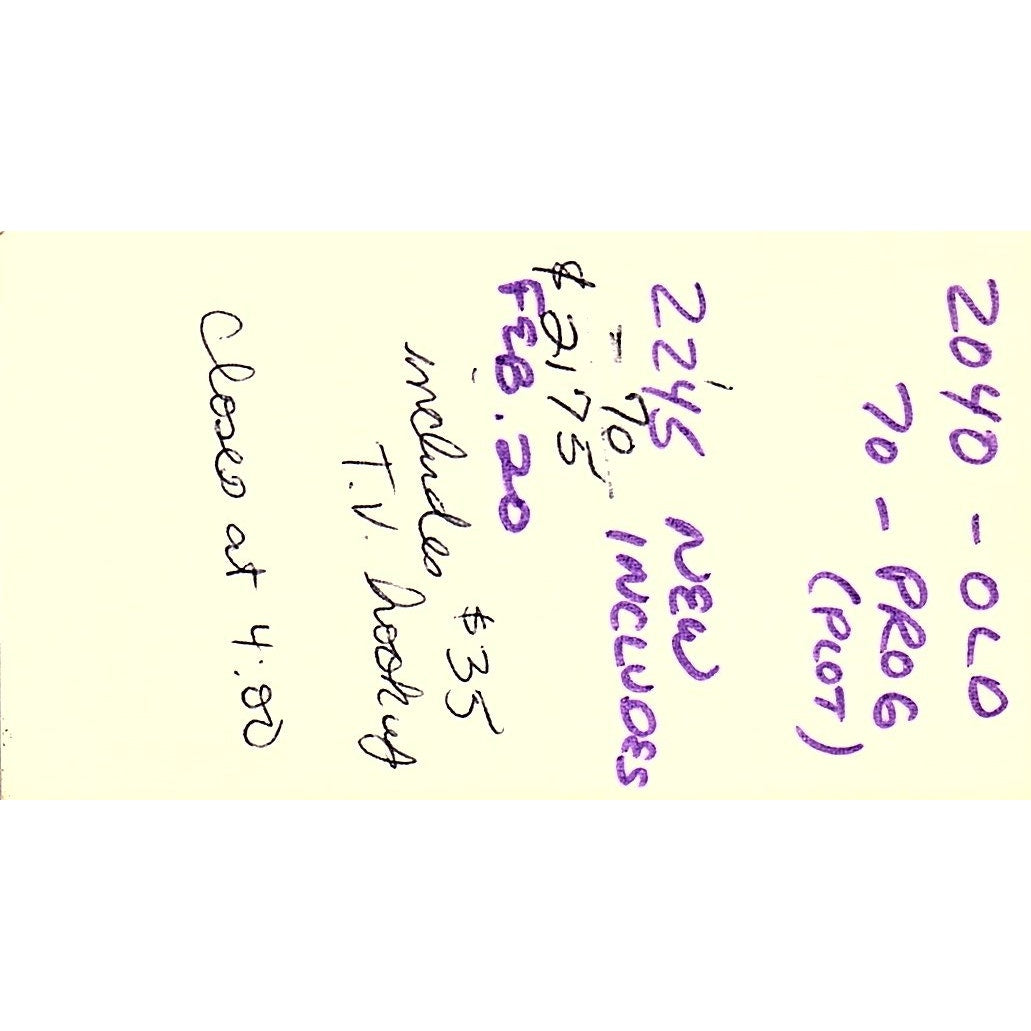 2040 - OLD
70 - PROG
(PLOT)
2245 NEW
- 70 INCLUDES
$2175
FEB. 20
$35
includes
T.V. hookup
Closes at 4:00